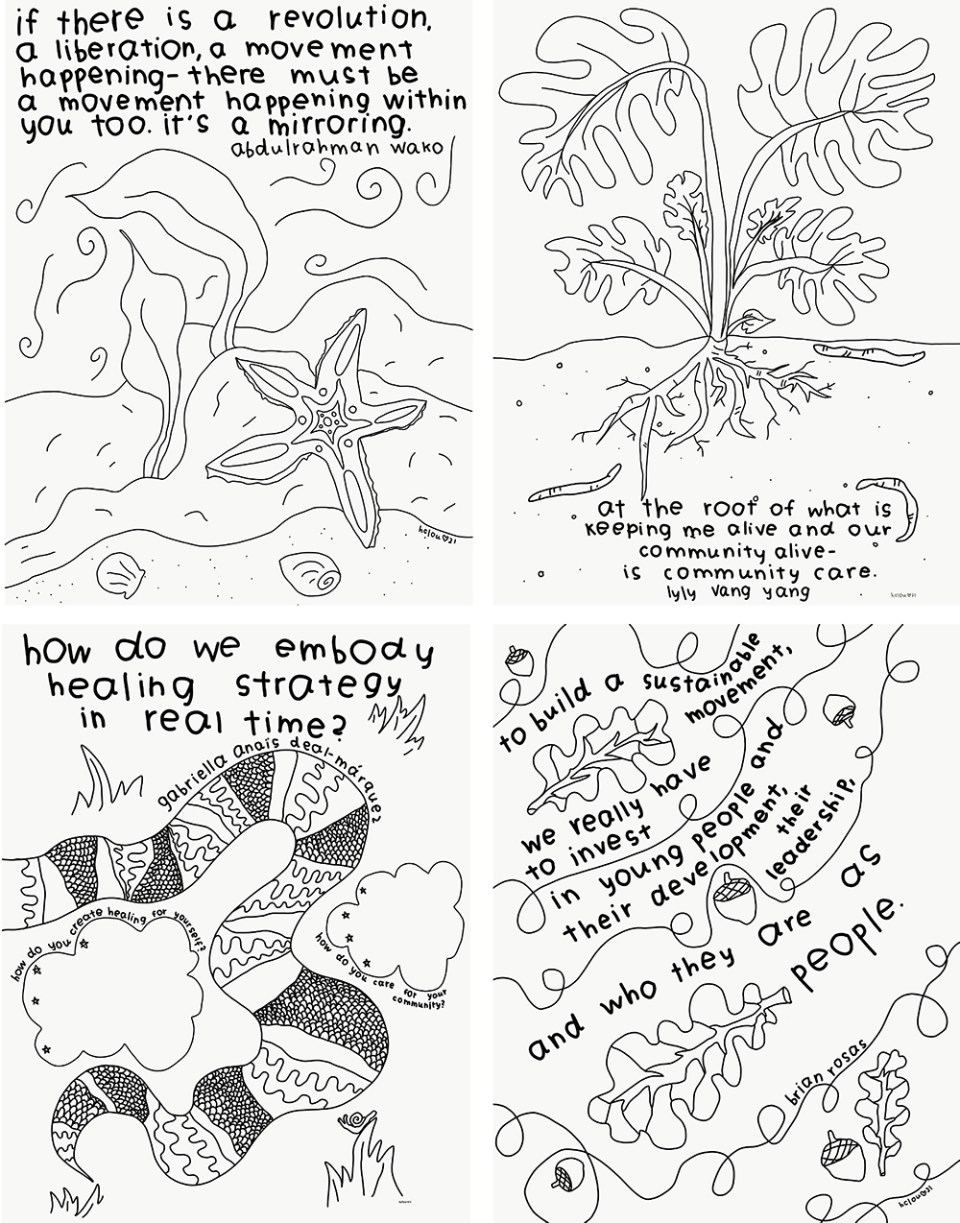 if there is a revolution,
a liberation, a movement
happening- there must be
a movement happening within
you too. it's a mirroring.
abdulrahman wako
helou 21
at the root of what is
keeping me alive and our
community alive-
is community care.
lyly vang yang
helou 21
how do we embody
healing strategy
in real time?
gabriella anaís deal-márquez
how do you create healing for yourself?
how do you care for your
community?
to build a sustainable
movement,
we really have
to invest
in young people and
their development,
their
leadership,
and who they are as
people.
brian rosas
helou 21